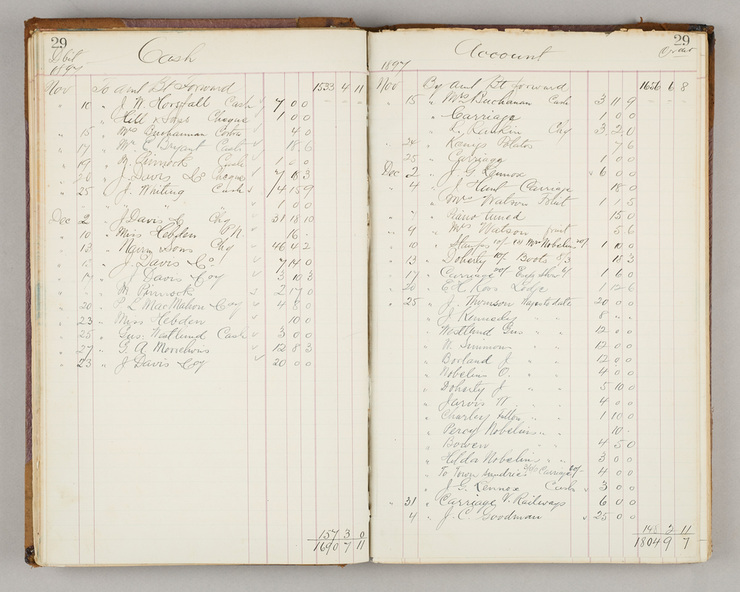 29
Debit Cash
1897
Nov To amt Bt Forward 1533 4 11
10 " J. W. Horsfall Cash 7 0 0
" Hill & Sons Cheque 1 0 0
" 15 " Mrs Buchannan 4 0
" 17 " Mr C. Bryant Cash 18 6
" 19 " M. Pinnock Cash 1 0 0
" 26 " J. Davis & Co Cheque 7 18 3
" 25 " J. Whiting Cash 4 15 9
" " 1 0 0
Dec 2 " J Davis & C Chq 31 18 10
" 10 " Miss Hebden P.N. 16 -
" 13 " & Sons Chq 46 4 2
" 15 " J. Davis & Co 7 14 0
" 17 " J Davis & Coy 3 10 3
" " M. Pinnock 2 17 0
" 20 " P. L. MacMahon & Coy 4 8 0
" 23 " Miss Hebden 10 0
" 25 " Gus. Westlund Cash 3 0 0
" 27 " G. A. 12 8 3
" 23 " J Davis & Coy 20 00
157 3 0
1690 7 11
29
Account Credit
1897
Nov By amt Bt forward 1656 6 8
" 15 " Mrs Buchanan Cash 3 11 9
" Carriage 1 0 0
" L. Rankin Chq 3 2 0
" 20 " 7 6
" 25 " Carriage 1 0 0
Dec 2 " J G Lennox 6 0 0
" 4 " J. Hunt Carriage 18 0
" Mrs Watson Fruit 1 1 5
" 7 " Piano tuned 15 0
" 9 " Mrs Watson fruit 5 6
" 10 " Mr Nobelius 1 10 0
" 13 " Doherty Boots 8/3 18 3
" 17 " Carriage 1 6 0
" 20 " E. H. Ross Lodge 1 12 6
" 25 " J. Thomson Wages to date 20 0 0
" J. Kennedy 8
" Westlund Gus " " 12 0 0
" W. Simmons " 12 0 0
" Borland J. " " 12 0 0
" Nobelius O. " " 4 0 0
" Doherty J " " 5 10 0
" Jarvis W " " 4 0 0
" Charley " " 1 10 0
" Percy Nobelius " " 10
" Bowen " " 4 5 0
" Hilda Nobelius " " 3 0 0
" To Town sundries Carriage 4 0 0
" J. G. Lennox Cash 3 0 0
" 31 " Carriage V. Railways 6 0 0
" 4 " J. C. Goodman 25 0 0
148 2 11
1804 9 7